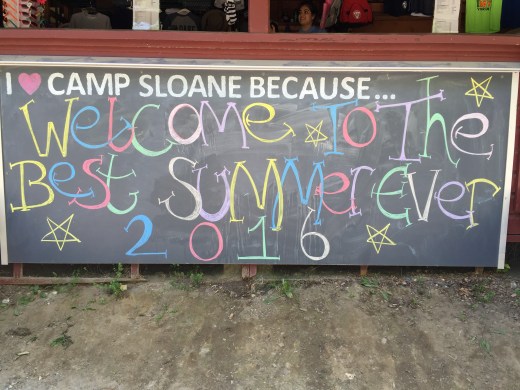 I ♥ CAMP SLOANE BECAUSE...
Welcome To The
Best Summer Ever
2016